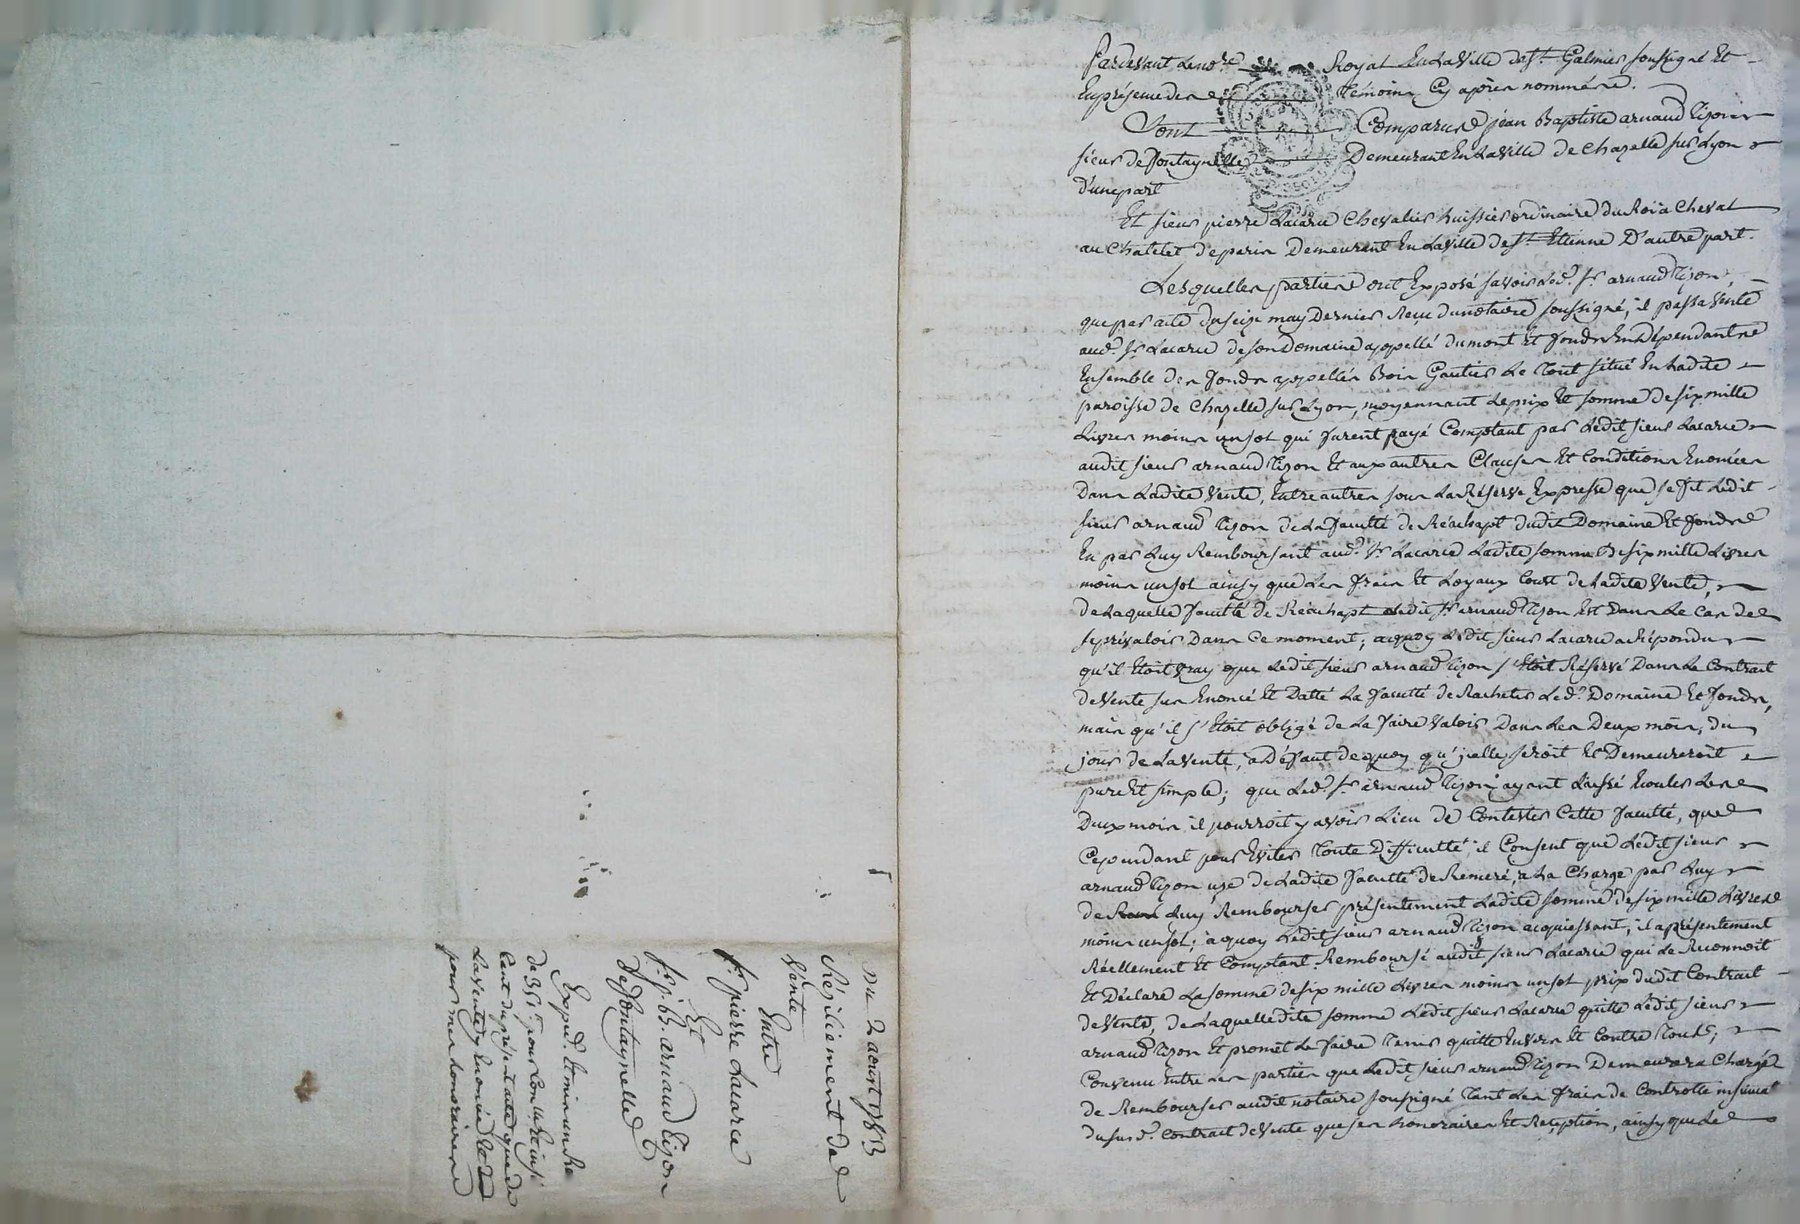 Du 2 aoust 1783
Résiliement de
Vante
Entre
Sr. pierre Lacarie
Et
Sr. j. B. arnaud Tizon
De fontaynelle
Expéd. Et mis en Re
de 35 lt. pour
Cent du présent acte que de
La vente y Enoncée
pour mes honoraires
pardevant Le nore. Royal En La Ville de St. Galmier soussigné Et
En présence des témoins Cy après nommés.
Sont Comparus jean Baptiste arnaud Tizon
sieur de fontaynelle Demeurant En La Ville de Chazelle sur Lyon
d'une part
Et sieur pierre Lacarie Chevalier huissier ordinaire du Roi à Cheval
au Chatelet de paris Demeurant En La Ville de St. Etienne D'autre part.
Lesquelles parties ont Exposé savoir Led. Sr. arnaud Tizon,
que par acte du seize may Dernier Reçu du notaire soussigné, il passa Vente
aud. Sr. Lacarie de son Domaine appellé du mont Et fonds En Dépendants
Ensemble des fonds appellés Bois Gautier Le tout situé En Ladite
paroisse de Chazelle sur Lyon, moyennant Le prix Et somme de six mille
Livres moins un sol qui furent payé Comptant par Ledit sieur Lacarie
audit sieur arnaud Tizon Et aux autres Clauses Et Conditions Enoncées
Dans Ladite Vente, Entre autres sous La Réserve Expresse que se fit Ledit
sieur arnaud Tizon de La faculté de Réachapt dudit Domaine Et fonds
En par Luy Remboursant aud. Sr. Lacarie Ladite somme De six mille Livres
moins un sol ainsy que Les frais Et Loyaux Cout de Ladite Vente,
de Laquelle faculté de Réachapt Ledit Sr. arnaud Tizon Est Dans Le Cas de
se prévaloir Dans Ce moment; a quoy Ledit sieur Lacarie a Répondu
qu'il Etoit vray que Ledit sieur arnaud Tizon s'Etoit Réservé Dans Le Contrait
de Vente sus Enoncé Et Datté La faculté de Racheter Led. Domaine Et fonds,
mais qu'il s'Etoit obligé de La faire Valoir Dans Les Deux mois, du
jour de La Vente, a Défaut de quoy qu'jcelle seroit Et Demeureroit
pure Et simple; que Led. Sr. arnaud Tizon ayant Laissé Ecouler Les
Deux mois il pourroit y avoir Lieu de Contester Cette faculté, que
Cependant pour Eviter toute Difficulté il Consent que Ledit sieur
arnaud Tizon use de Ladite faculté de Reméré, a La Charge par Luy
de Luy Rembourser présentement Ladite somme de six mille Livres
moins un sol; a quoy Ledit sieur arnaud Tizon acquiessant, il a présentement
Réellement Et Comptant Remboursé audit sieur Lacarie qui Le Reconnoit
Et Déclare La somme de six mille Livres moins un sol prix dudit Contrait
de Vente, de Laquelledite somme Ledit sieur Lacarie quitte Ledit sieur
arnaud Tizon Et promet Le faire tenir quitte Envers Et Contre tous;
Convenu Entre Les parties que Ledit sieur arnaud Tizon Demeurera Chargé
de Rembourser audit notaire soussigné tant Les frais de Controlle insinuat
du susd. Contrait de Vente que ses honoraires Et Reception, ainsy que de